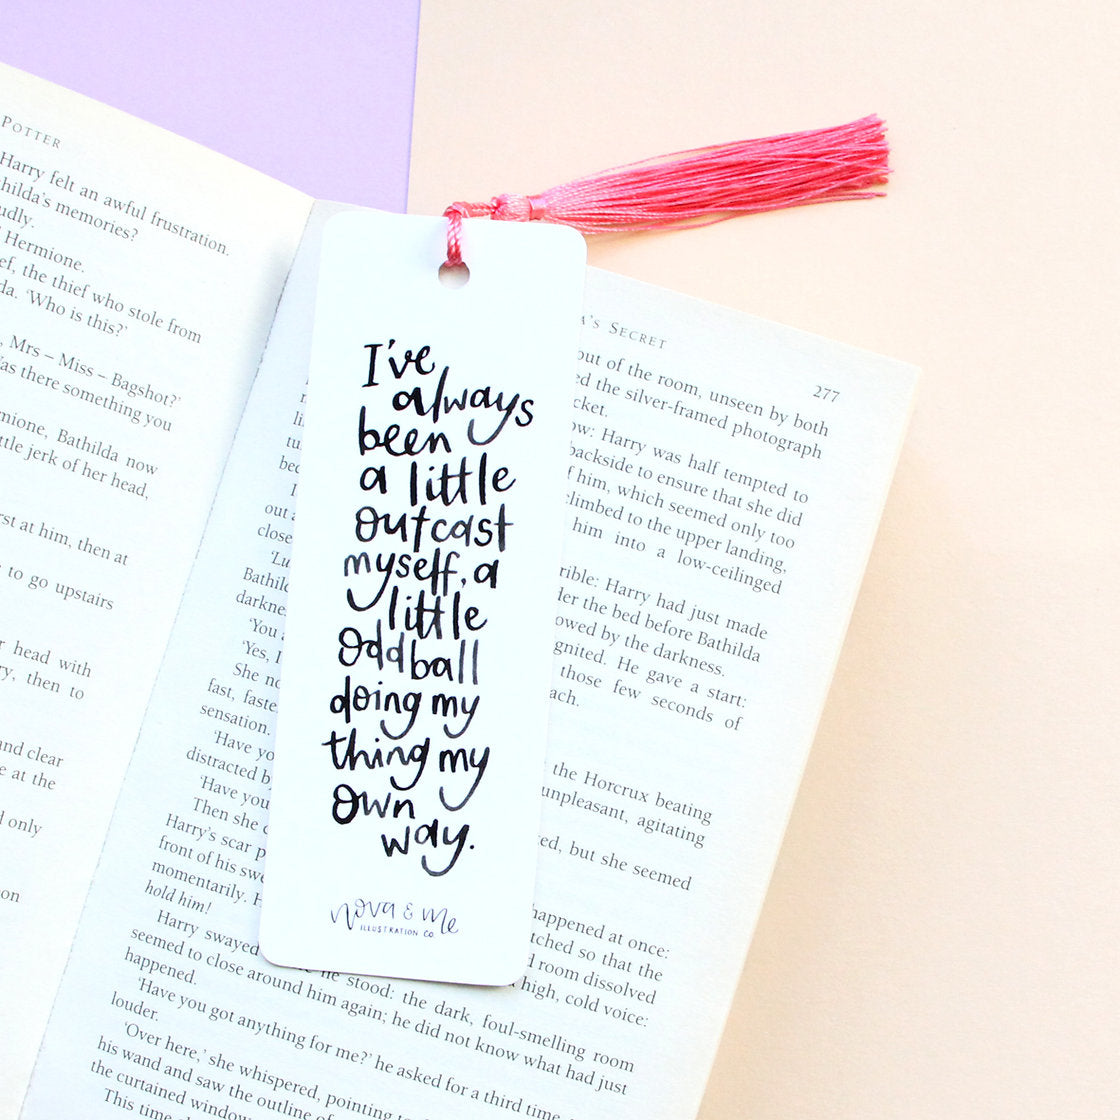 POTTER
Harry felt an awful frustration.
memories?
Hermione.
the thief who stole from
'Who is this?'
Mrs – Miss – Bagshot?'
was there something you
Bathilda now
little jerk of her head,
at him, then at
to go upstairs
head with
then to
and clear
at the
only
on
I've
always
been
a little
outcast
myself, a
little
oddball
doing my
thing my
own
way.
nova & me
ILLUSTRATION CO.
SECRET 277
out of the room, unseen by both
the silver-framed photograph
Harry was half tempted to
backside to ensure that she did
him, which seemed only too
climbed to the upper landing,
out him into a low-ceilinged
close
Harry had just made
the bed before Bathilda
by the darkness.
'You He gave a start:
'Yes, I those few seconds of
She
fast,
sensation.
'Have the Horcrux beating
distracted unpleasant, agitating
'Have you
Then she but she seemed
Harry's scar
front of his
momentarily. happened at once:
hold him! so that the
Harry swayed room dissolved
seemed to close around him again; he stood: the dark, high, cold voice:
happened. foul-smelling room
'Have you got anything for me?' he asked for a third time he did not know what had just
louder.
'Over here,' she whispered, pointing
his wand and saw the outline of
the curtained window
This time